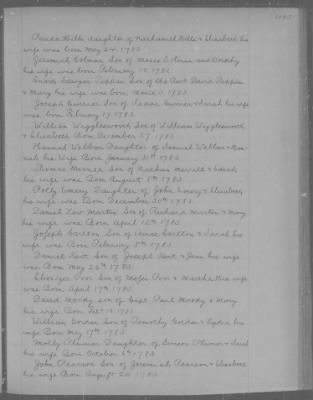 daughter of Nathaniel Mills & Elizabeth his
wife was born May 24. 1783
Jeremiah Colman Son of Moses Colman and Dorothy
his wife was born February 12. 1783
Enoch Sawyer Tappan Son of the Revt David Tappan
& Mary his wife was born March 3. 1783.
Joseph Currier Son of Isaac Currier & Sarah his wife
was born February 17. 1783
William Wigglesworth, Son of William Wigglesworth
& Elizabeth Born December 27. 1783
Hannah Wellman Daughter of Samuel Wellman & Han-
nah his Wife Born January 31st 1783
Thomas Merrill Son of Nathan Merrill & Sarah
his wife was Born August 8th 1783
Polly Emery Daughter of John Emery & Elizabeth
his wife was Born December 30th 1783
Daniel Low Martin Son of Richard Martin & Mary
his wife was Born April 12th 1783
Joseph Carlton Son of Amos Carlton & Sarah his
wife was Born February 5th 1783
Daniel Kent Son of Joseph Kent & Jane his wife
was Born May 26th 1783
Ebenezer Poor Son of Moses Poor & Martha his wife
was Born April 17th 1783
David Moody Son of Capt. Paul Moody & Mary
his wife Born
William Gordon Son of Timothy Gordon & Lydia his
wife Born May 17th 1783
Molly Plumer Daughter of Simeon Plumer & Sarah
his wife Born October 6th 1783
John Pearson Son of Jeremiah Pearson & Elizabeth
his wife Born August 20 1783